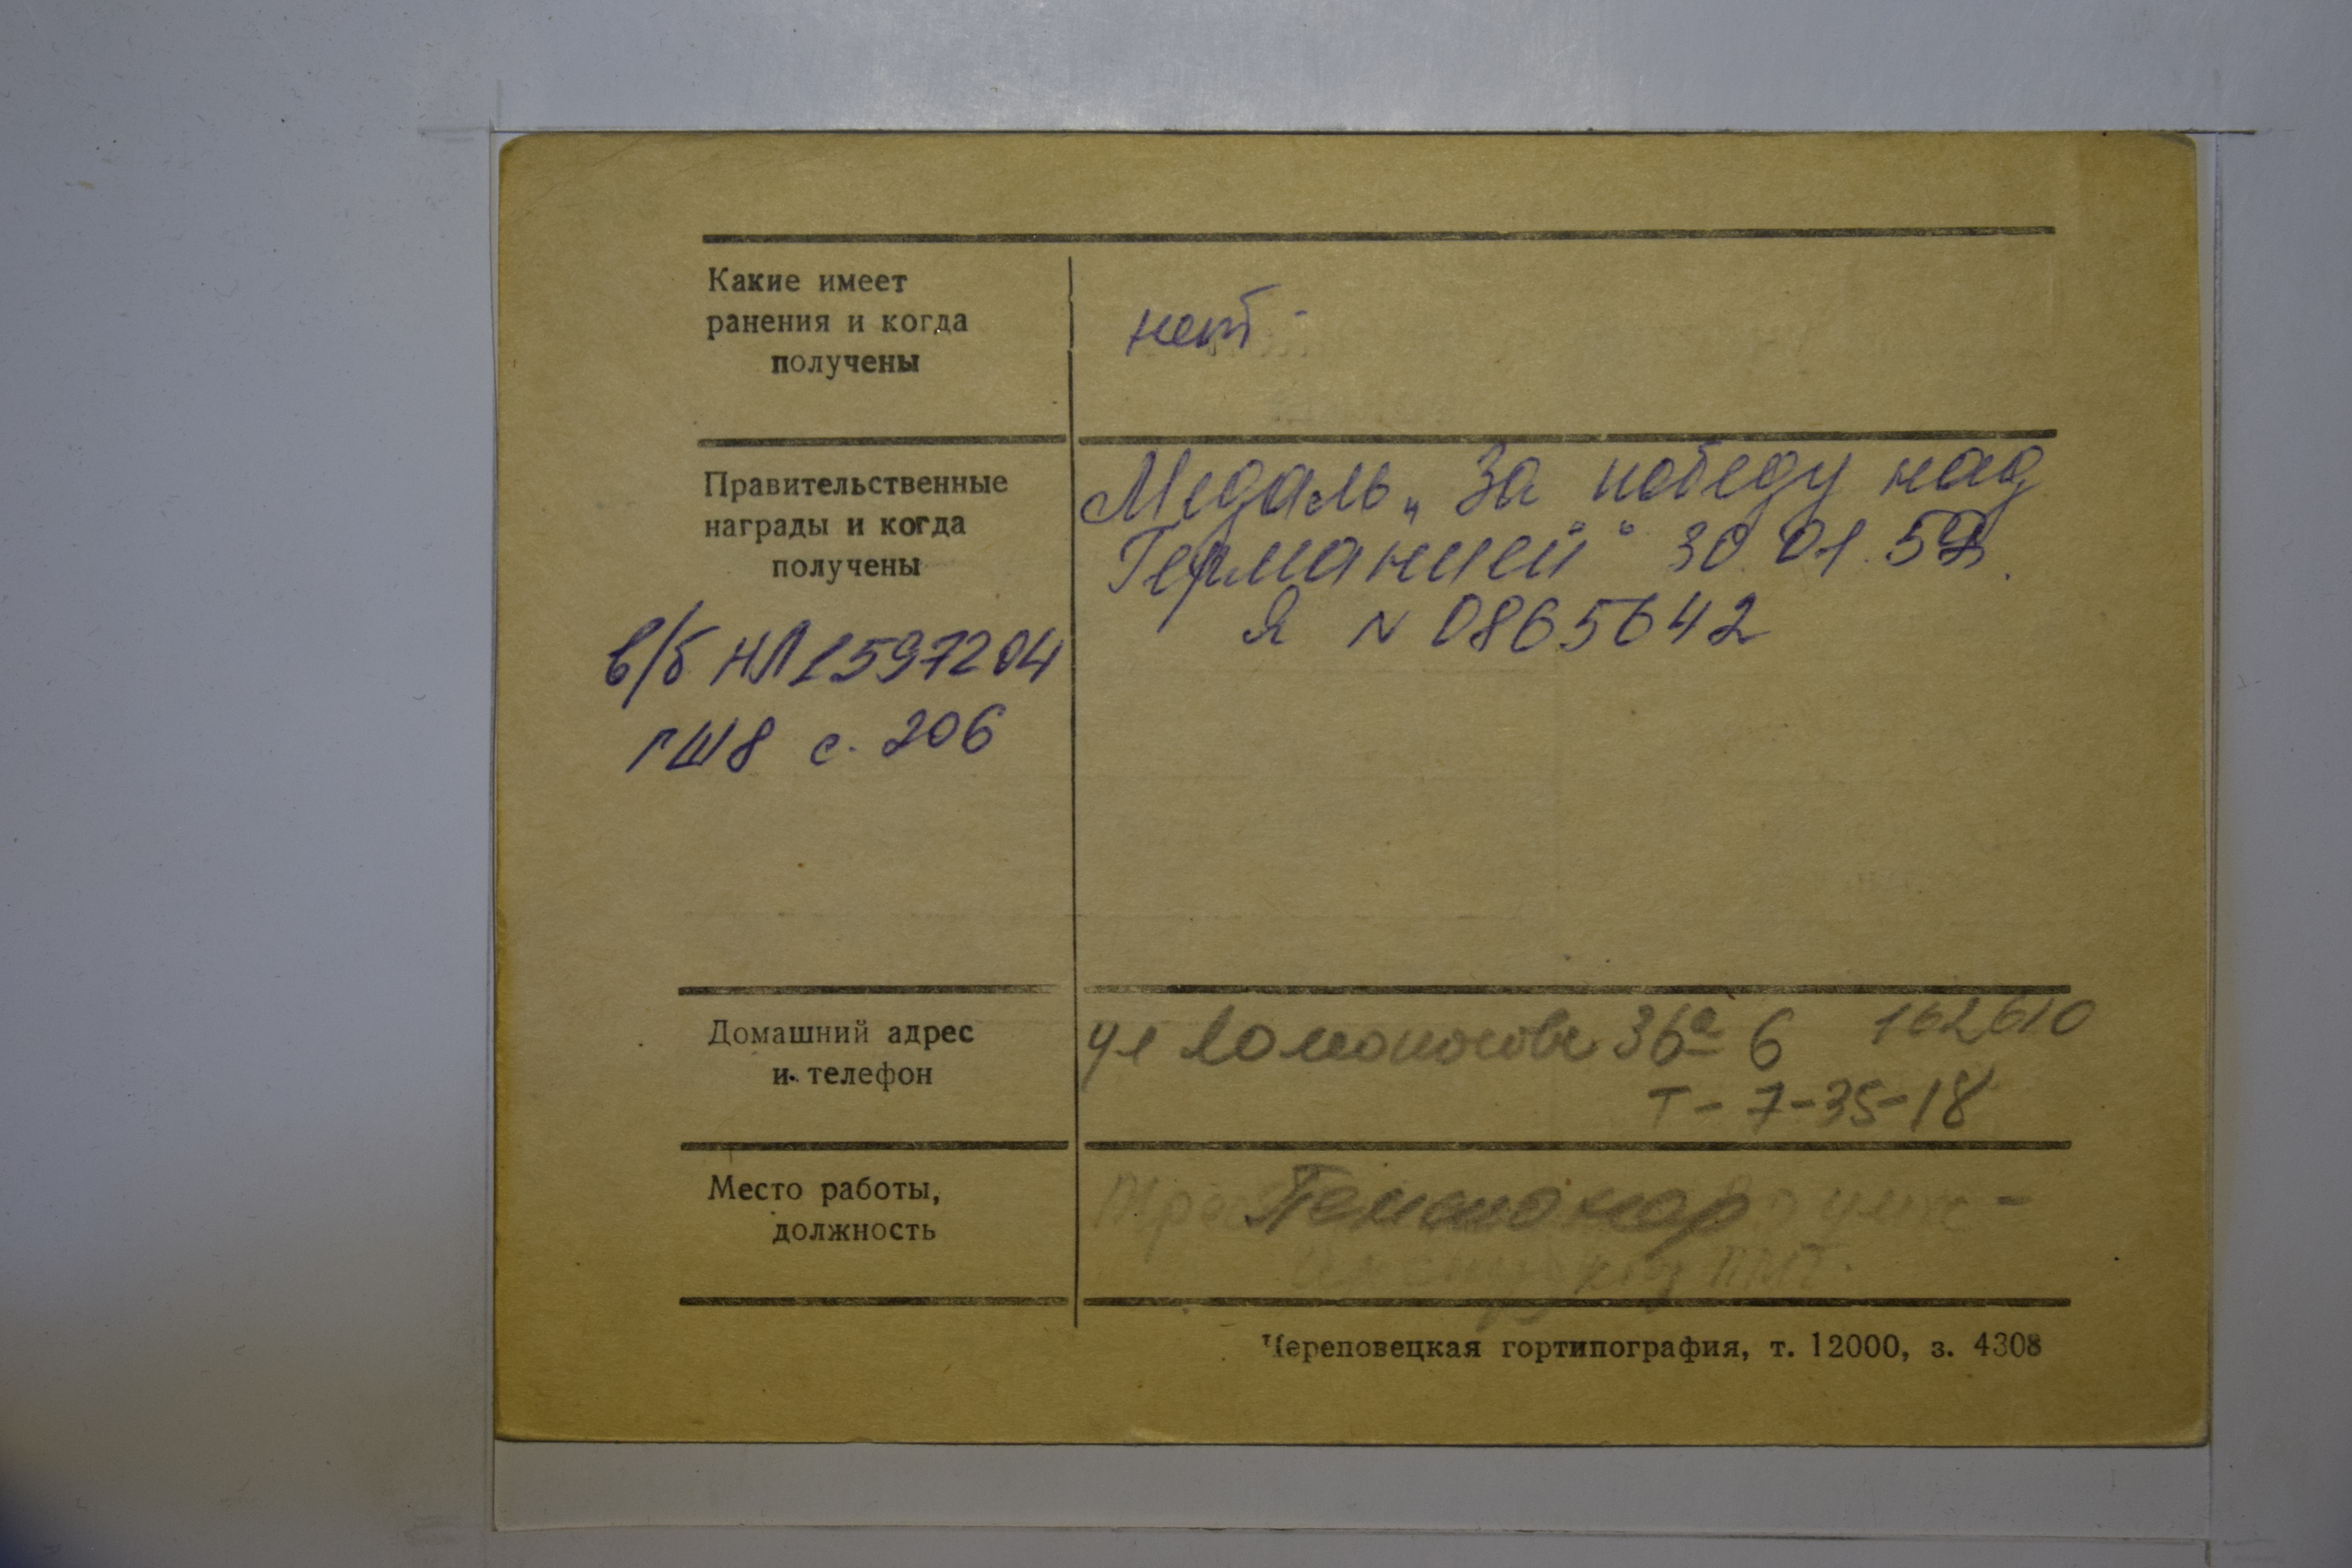 Какие имеет
ранения и когда
получены
нет -
Правительственные
награды и когда
получены
Медаль „За победу над
Германией" 30.01.
Я N 0865642
в/б НЛ 1597204
ГШ8 с. 206
Домашний адрес
и телефон
ул Ломоносова 36а 6 162610
т - 7-35-18
Место работы,
должность
Пенсионер
Череповецкая гортипография, т. 12000, з. 4308